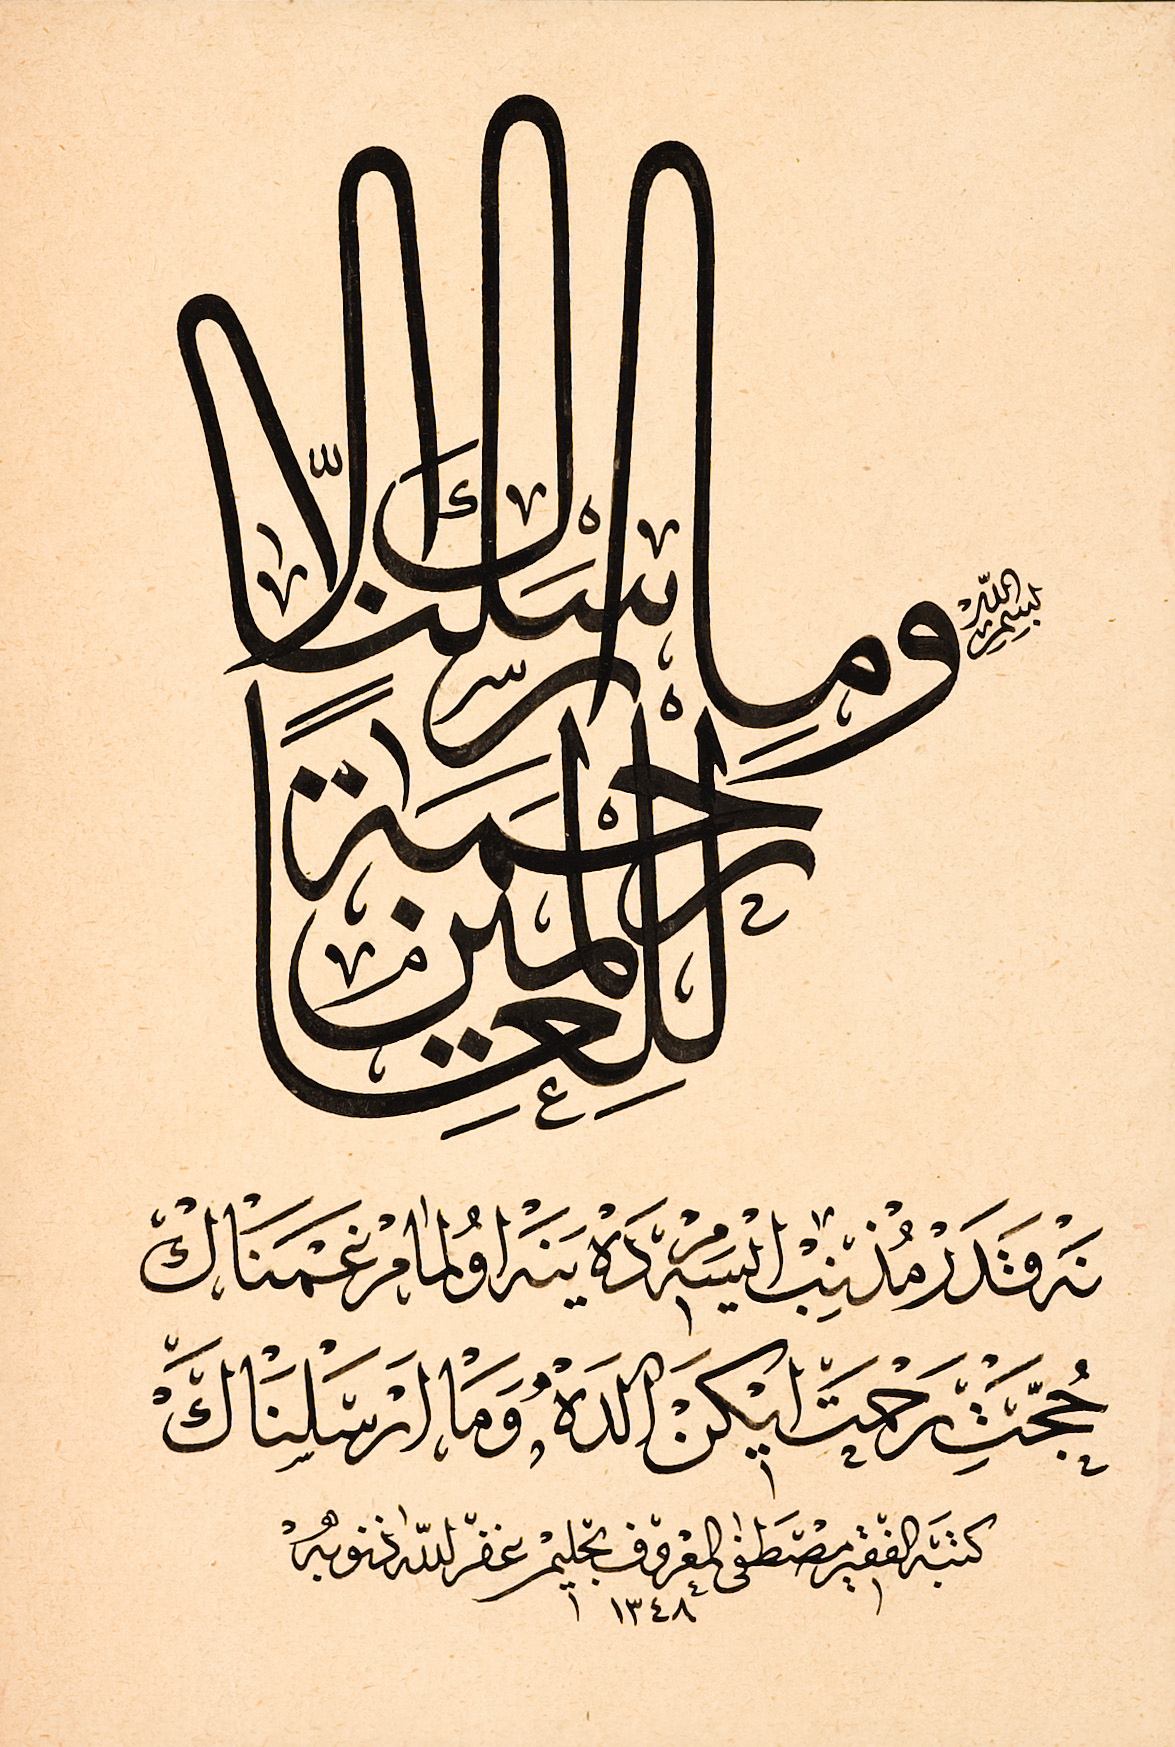 بسم الله
وما ارسلناك الا رحمة للعالمين
نه قدر مذنب ايسه ده ينه اولمام غمناك
حجت رحمت ايكن الده وما ارسلناك
كتبه الفقير مصطفى المعروف بحليم غفر الله ذنوبه
١٣٤٨